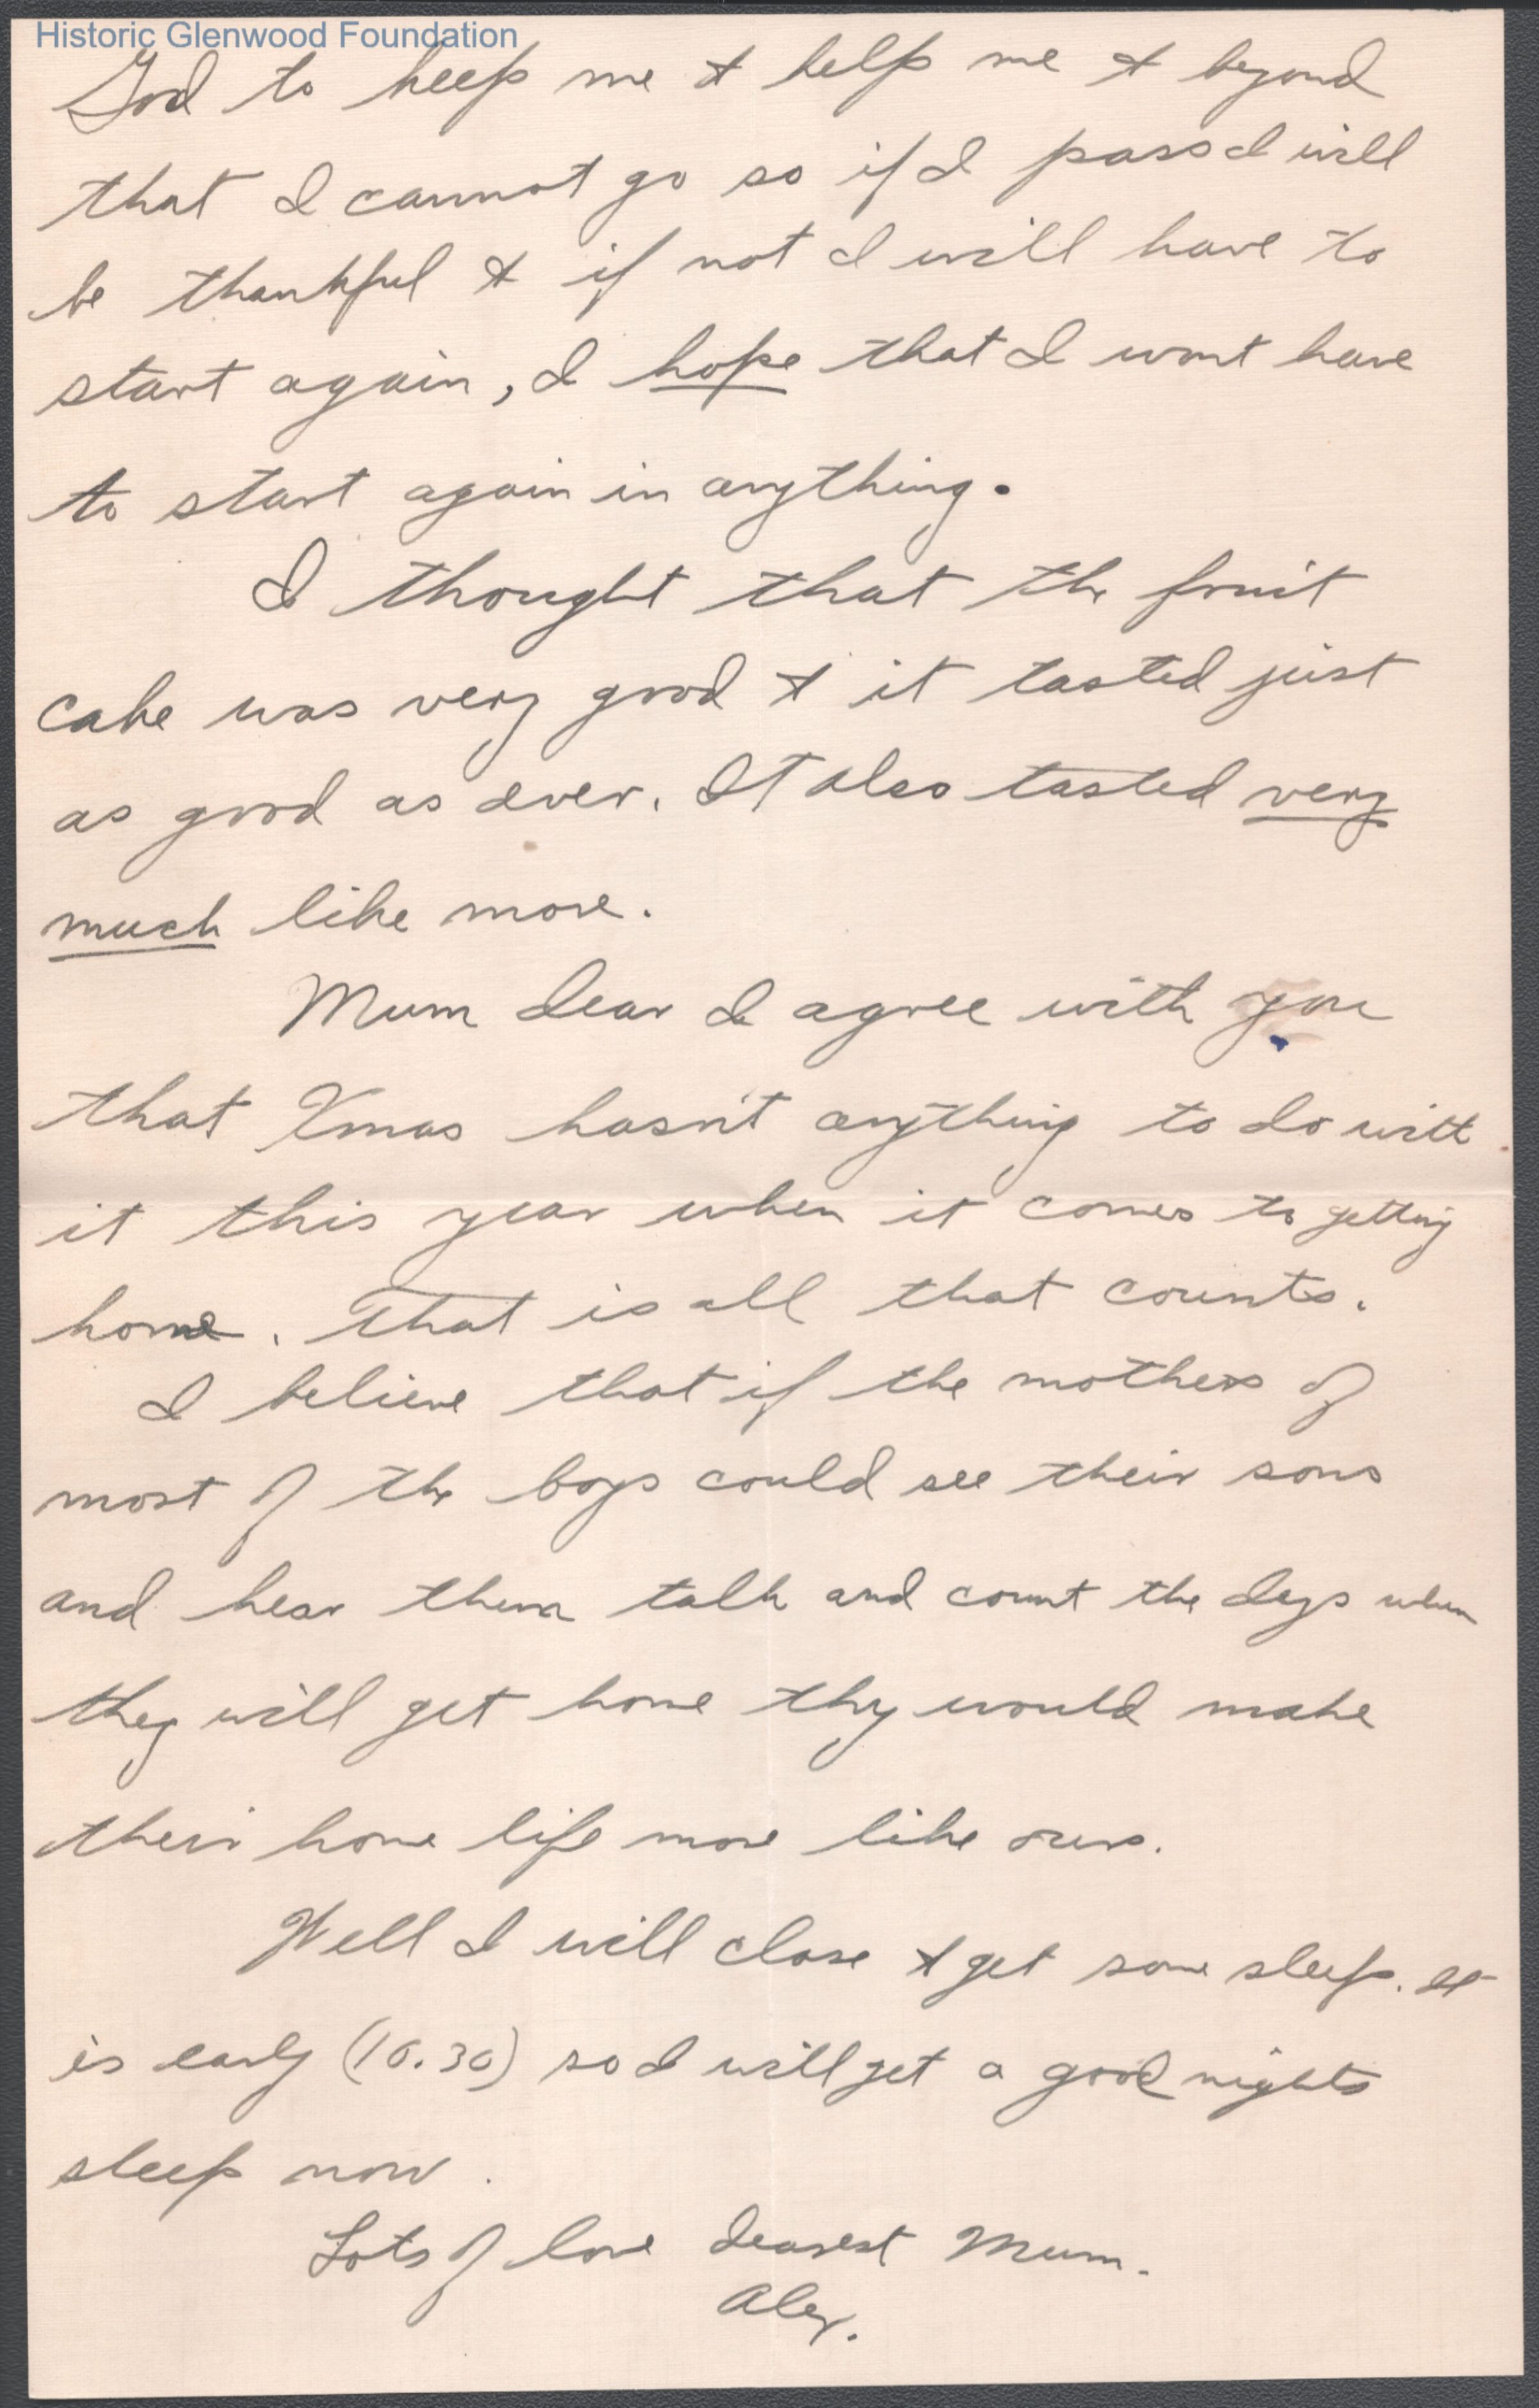 Historic Glenwood Foundation
God to keep me & help me & beyond
that I cannot go so if I pass I will
be thankful & if not I will have to
start again, I hope that I wont have
to start again in anything.
I thought that the fruit
cake was very good & it tasted just
as good as ever. It also tasted very
much like more.
Mum dear I agree with you
that Xmas hasn't anything to do with
it this year when it comes to getting
home. That is all that counts.
I believe that if the mothers of
most of the boys could see their sons
and hear them talk and count the days when
they will get home they would make
their home life more like ours.
Well I will close & get some sleep. It
is early (10.30) so I will get a good nights
sleep now.
Lots of love dearest Mum.
Alex.